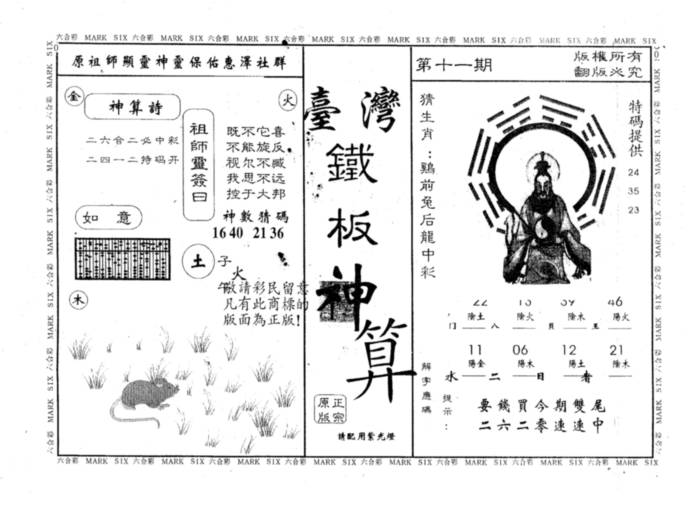 六合彩 MARK SIX 六合彩 MARK SIX 六合彩 MARK SIX 六合彩 MARK SIX 六合彩 MARK SIX 六合彩 MARK SIX 六合彩 MARK SIX 六合彩 MARK SIX
原祖師顯靈神靈保佑惠澤社群
金
神算詩
火
二六合二必中彩
二四二一持码开
祖師靈簽曰
既不它喜
不能旋反
视尔不臧
我思不远
控于大邦
如意
神數猜碼
16 40 21 36
土
子
火
午
敬請彩民留意
凡有此商標的
版面為正版!
木
臺灣
鐵
板
神
算
原正
版宗
請配用紫光燈
第十一期
版權所有
翻版必究
猜生肖:鷄前兔后龍中彩
特碼提供
24
35
23
46
陰土 陽火 陰木 陽火
11 06 12 21
陽金 陽木 陽土 陰木
水 二 日 看
解字應碼
提示:
要錢買今期雙尾
二六二零連連中
六合彩 MARK SIX 六合彩 MARK SIX 六合彩 MARK SIX 六合彩 MARK SIX 六合彩 MARK SIX 六合彩 MARK SIX 六合彩 MARK SIX 六合彩 MARK SIX